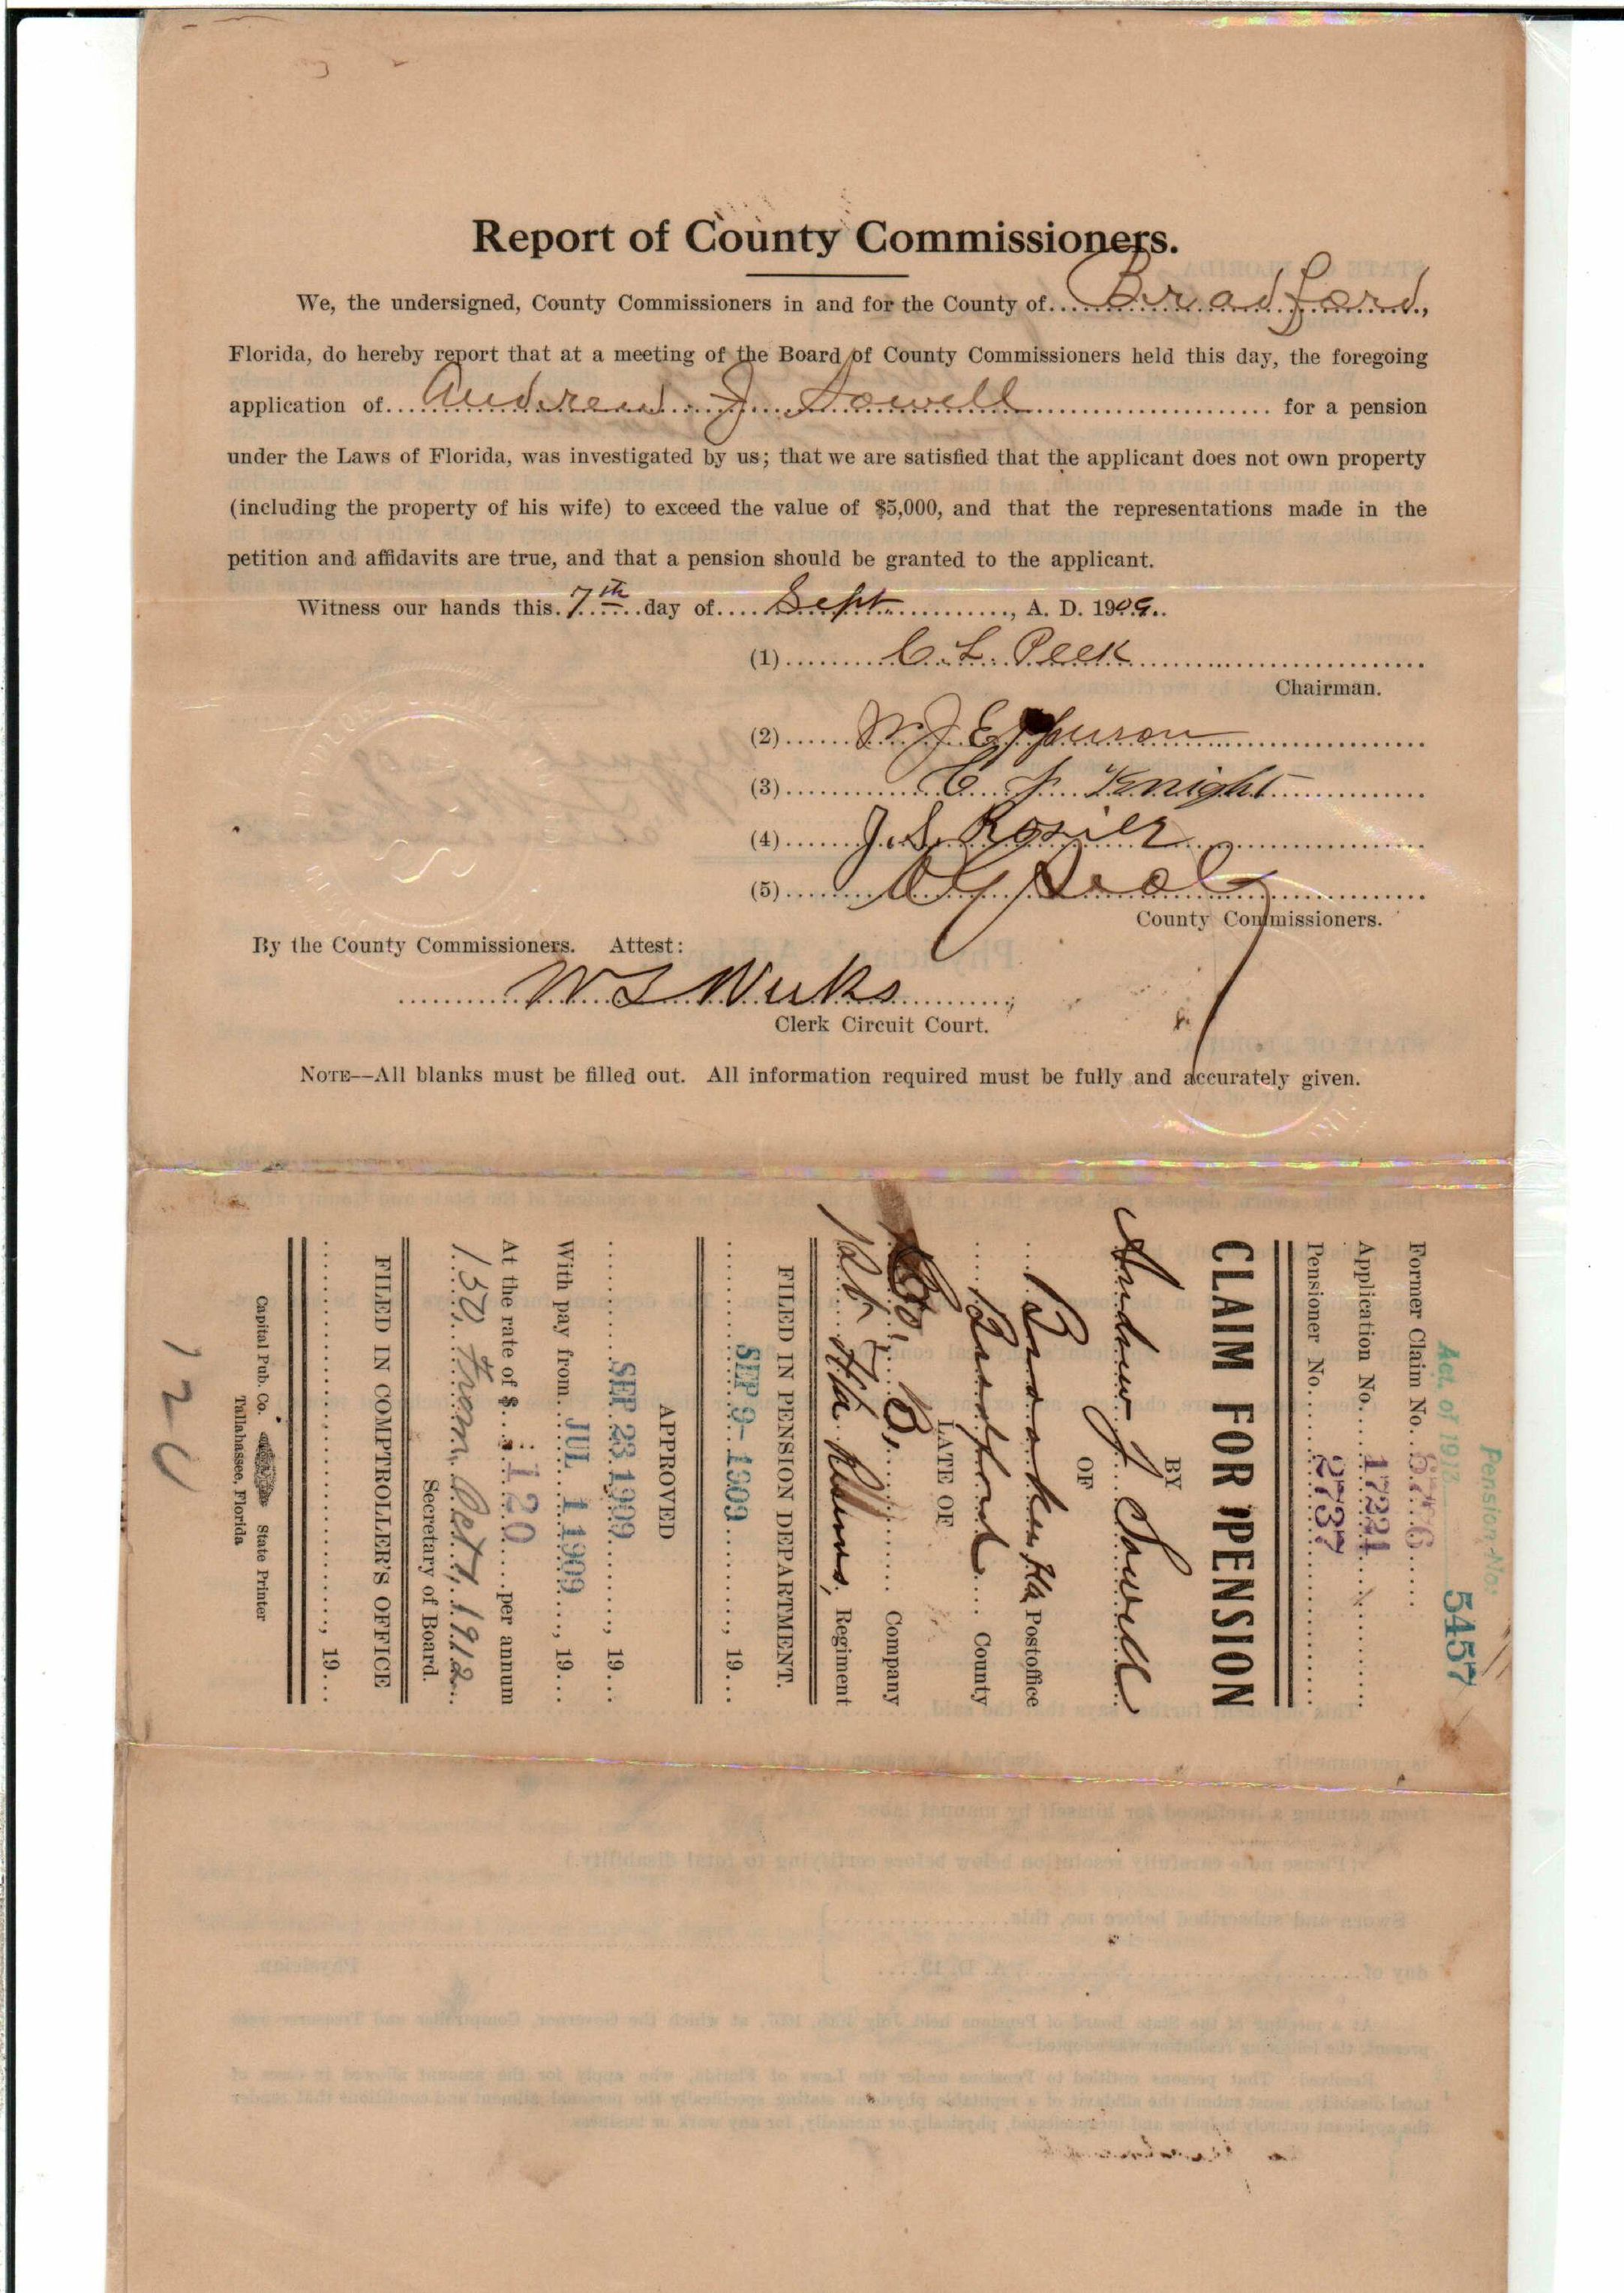 Report of County Commissioners.
We, the undersigned, County Commissioners in and for the County of Bradford,
Florida, do hereby report that at a meeting of the Board of County Commissioners held this day, the foregoing
application of Andrew J Sowell for a pension
under the Laws of Florida, was investigated by us; that we are satisfied that the applicant does not own property
(including the property of his wife) to exceed the value of $5,000, and that the representations made in the
petition and affidavits are true, and that a pension should be granted to the applicant.
Witness our hands this 7th day of Sept, A. D. 1909.
(1) C. L. Peek
Chairman.
(2) W J Epperson
(3) C. J. Knight
(4) J. S. Rosier
(5)
County Commissioners.
By the County Commissioners. Attest:
W L Weeks
Clerk Circuit Court.
NOTE—All blanks must be filled out. All information required must be fully and accurately given.
Pension No. 5457
Act of 1913
Former Claim No. 6776
Application No. 1721
Pensioner No. 2737
CLAIM FOR PENSION
BY
Andrew J Sowell
OF
Fla Postoffice
Bradford County
LATE OF
Co. B, Company
1st Fla Reserves, Regiment
FILED IN PENSION DEPARTMENT.
SEP 9-1909, 19
APPROVED
SEP 23 1909, 19
With pay from JUL 1 1909, 19
At the rate of $ 120 per annum
150 from Oct 1, 1912
Secretary of Board.
FILED IN COMPTROLLER'S OFFICE
, 19
Capital Pub. Co. State Printer
Tallahassee, Florida
120